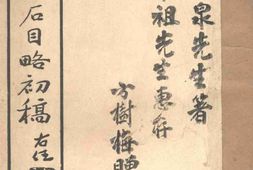 泉先生箸
祖先生惠存
方樹梅贈
石目略初稿
右任